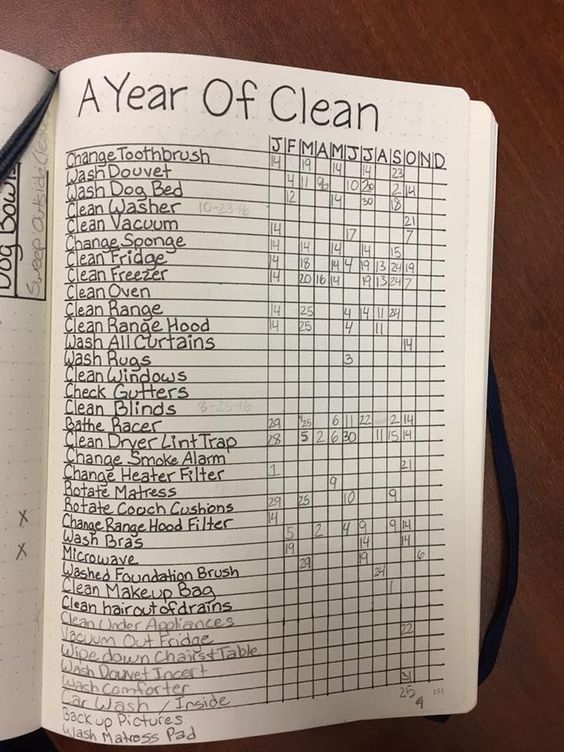 A Year Of Clean
J F M A M J J A S O N D
Change Toothbrush 14 19 14 14 23
Wash Douvet 4 11 10 20 2 14
Wash Dog Bed 12 14 30 18
Clean Washer 10-23-16
Clean Vacuum 21
Change Sponge 14 17 7
Clean Fridge 14 14 14 14 14 15
Clean Freezer 14 18 14 4 19 13 24 19
Clean Oven 14 20 16 14 19 13 24 7
Clean Range
Clean Range Hood 14 25 4 14 11 24
Wash All Curtains 14 25 4 11
Wash Rugs 14
Clean Windows 3
Check Gutters
Clean Blinds 8-25-16
Bathe Racer 29 25 6 11 22 2 14
Clean Dryer Lint Trap 28 5 2 6 30 11 15 14
Change Smoke Alarm
Change Heater Filter 1 21
Rotate Matress 9
Rotate Couch Cushions 29 25 10 9
Change Range Hood Filter 14
Wash Bras 5 2 4 9 9 14
Microwave 19 14 14
Washed Foundation Brush 29 19 6
Clean Makeup Bag 24
Clean hair out of drains 1
Clean Under Appliances
Vacuum Out Fridge 22
Wipe down Chairs & Table
Wash Douvet Incert
Wash Comforter 31
Car Wash / Inside 25 9
Back up Pictures
Wash Matress Pad
155
Dog Bowls
Sweep Outside
X
X